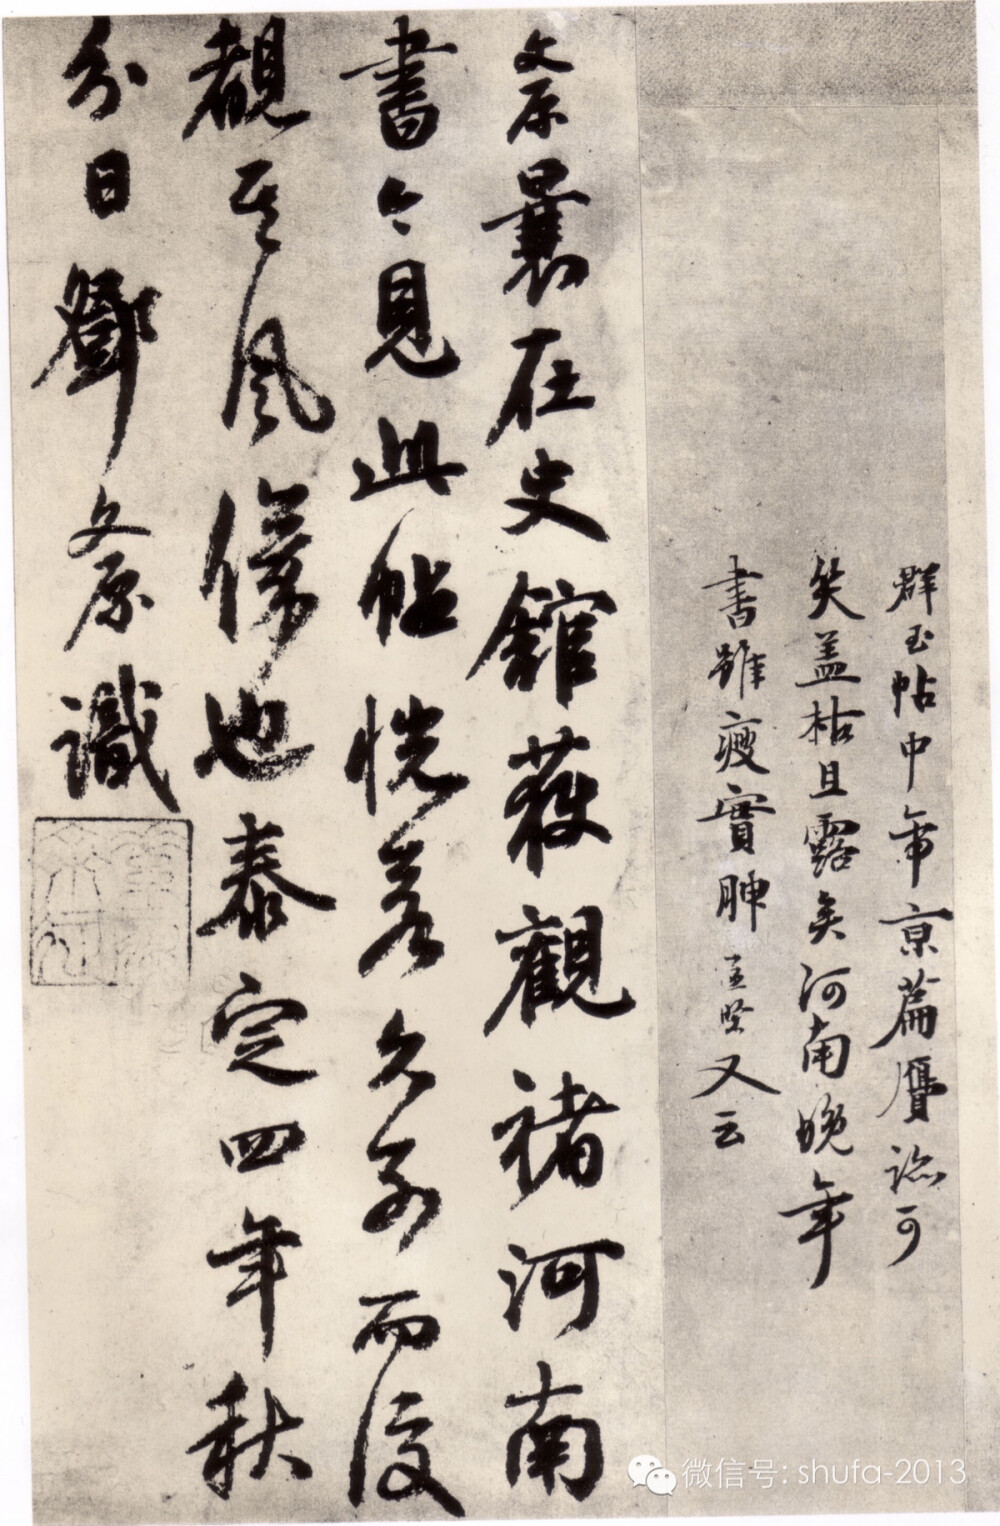 群玉帖中 帝京篇贋迹可
笑盖枯且露矣河南晚年
書雖瘦實腴 又云
文原曩在史館获觀褚河南
書今見此帖恍若久别而復
覩其風儀也泰定四年秋
分日鄧文原識
微信号: shufa-2013